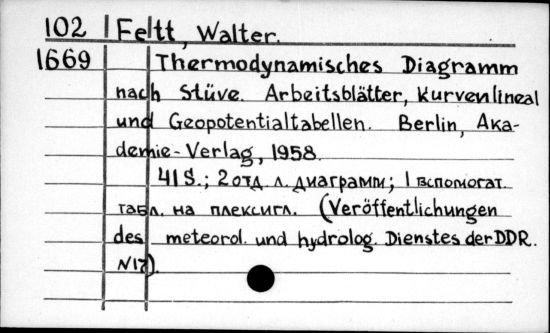 102 Feltt, Walter.
1669 Thermodynamisches Diagramm
nach Stüve. Arbeitsblätter, Kurvenlineal
und Geopotentialtabellen. Berlin, Aka-
demie-Verlag, 1958.
41 S.; 2 отд. л. диаграмм; 1 вспомогат.
табл. на плексигл. (Veröffentlichungen
des meteorol. und hydrolog. Dienstes der DDR.
N17).